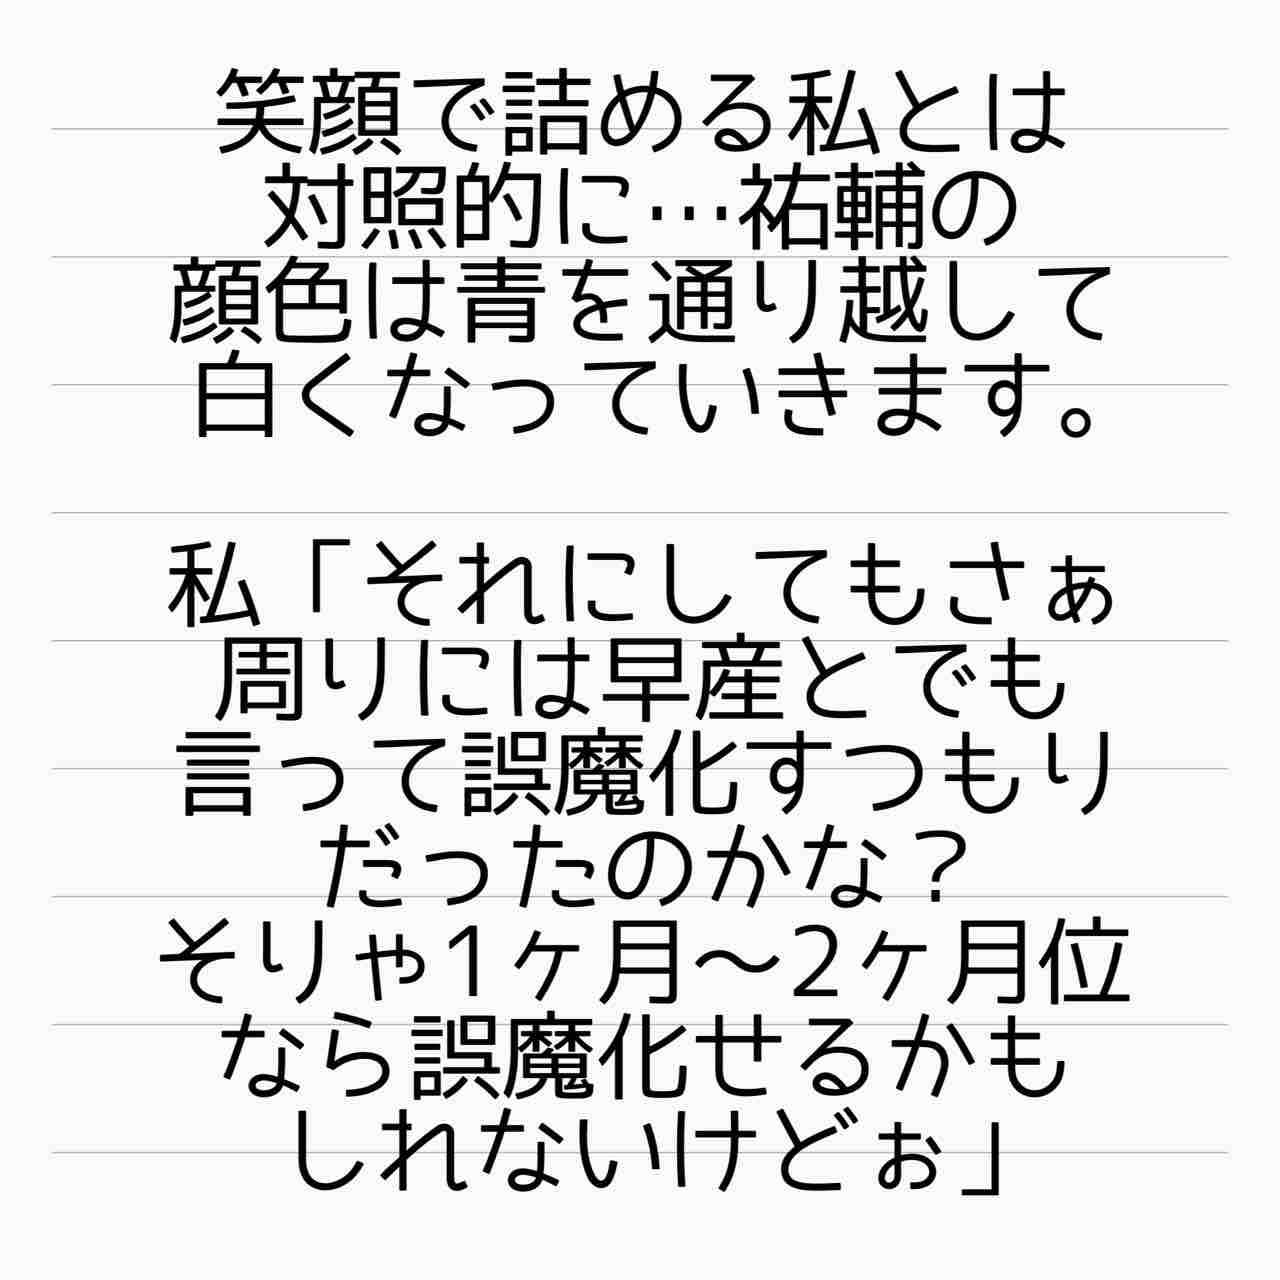 笑顔で詰める私とは
対照的に…祐輔の
顔色は青を通り越して
白くなっていきます。
私「それにしてもさぁ
周りには早産とでも
言って誤魔化すつもり
だったのかな？
そりゃ1ヶ月〜2ヶ月位
なら誤魔化せるかも
しれないけどぉ」